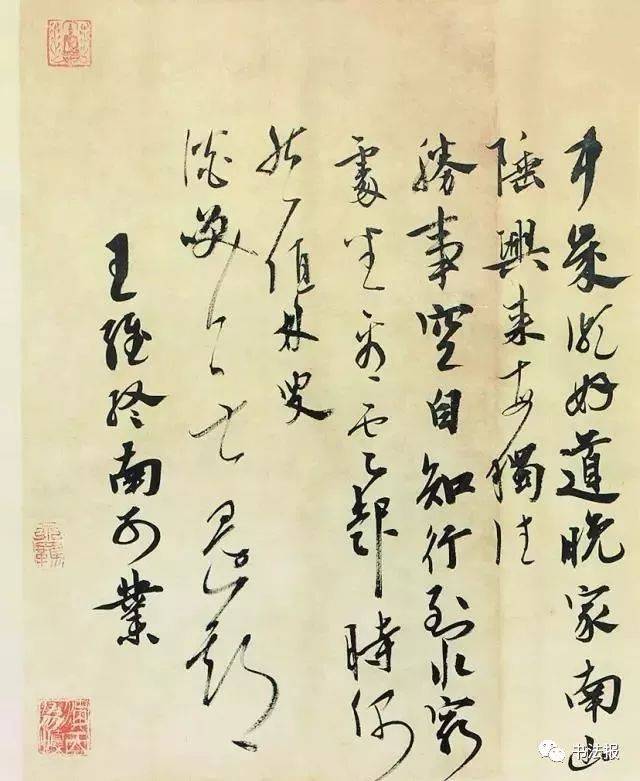 中歲頗好道晚家南山
陲興來每獨往
勝事空自知行到水窮
處坐看雲起時偶
然值林叟
談笑無還期
王維終南別業
书法报